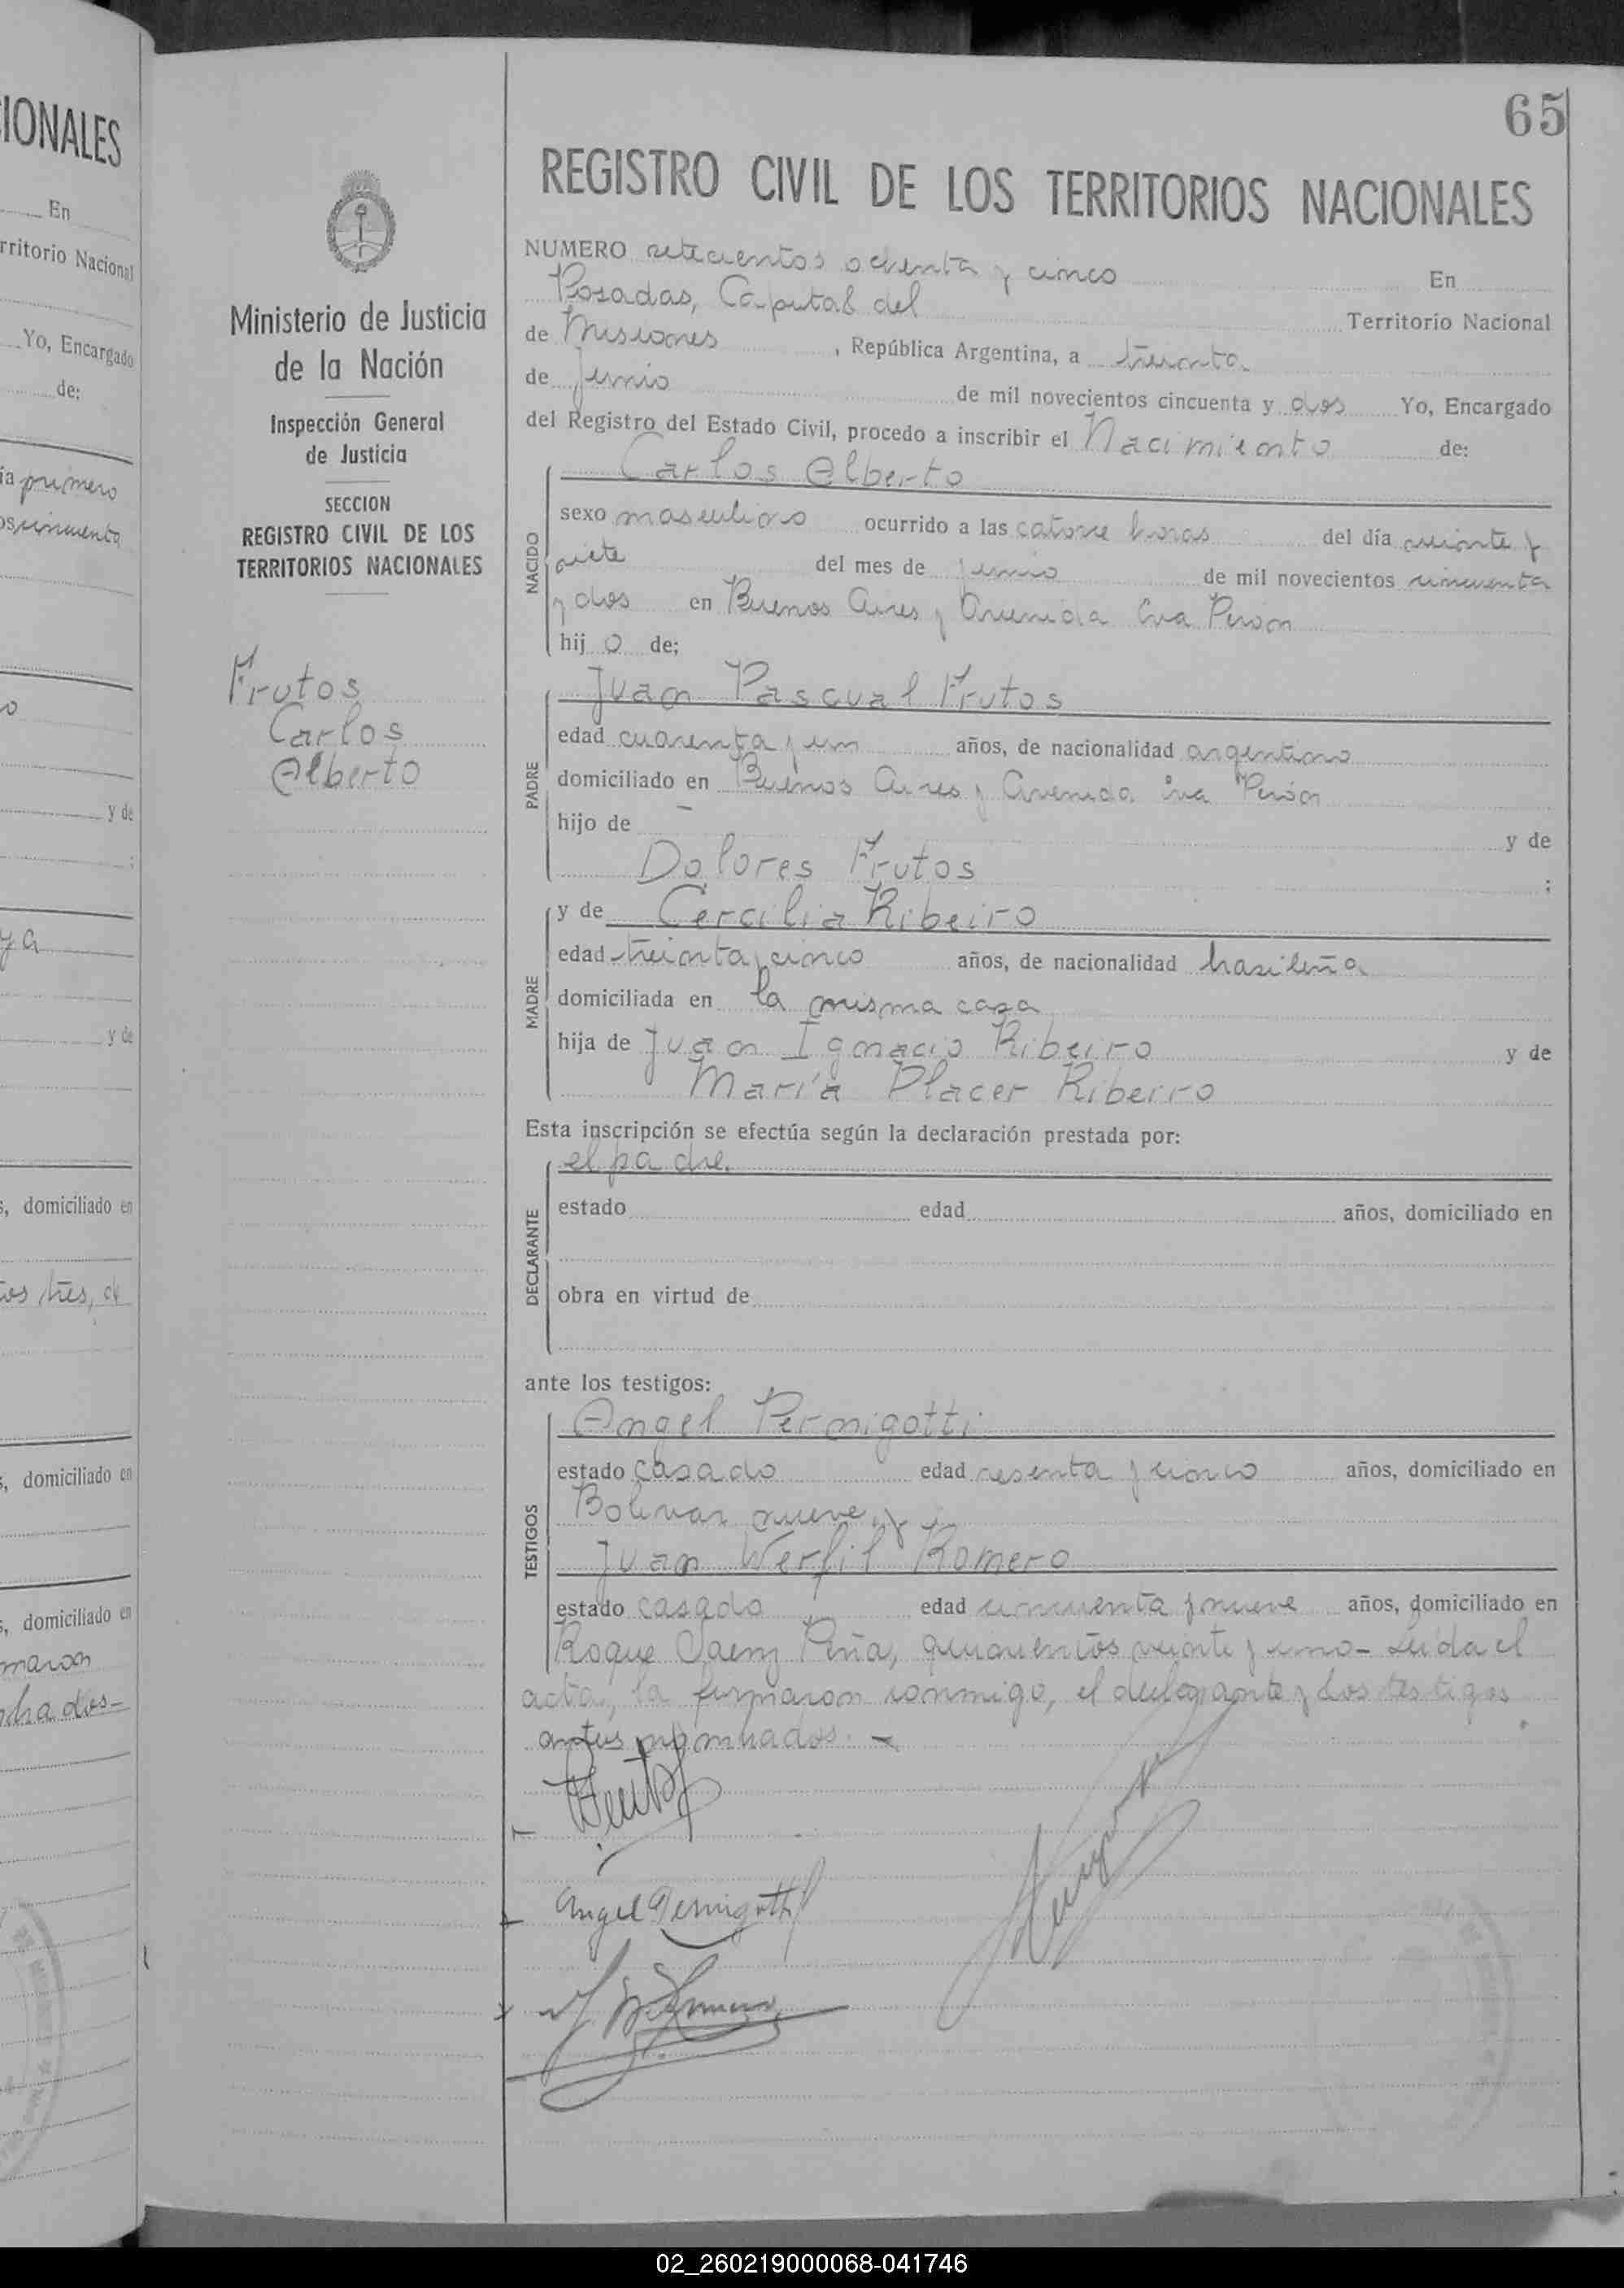 IONALES
En
rritorio Nacional
Yo, Encargado
de:
ía primero
cincuenta
y de
ya
y de
s, domiciliado en
tres, de
s, domiciliado en
s, domiciliado en
maron
cha dos-
65
Ministerio de Justicia
de la Nación
Inspección General
de Justicia
SECCION
REGISTRO CIVIL DE LOS
TERRITORIOS NACIONALES
Frutos
Carlos
Alberto
REGISTRO CIVIL DE LOS TERRITORIOS NACIONALES
NUMERO setecientos ochenta y cinco En
Posadas, Capital del Territorio Nacional
de Misiones, República Argentina, a treinta
de junio de mil novecientos cincuenta y dos Yo, Encargado
del Registro del Estado Civil, procedo a inscribir el Nacimiento de:
NACIDO
Carlos Alberto
sexo masculino ocurrido a las catorce horas del día veinte y
siete del mes de junio de mil novecientos cincuenta
y dos en Buenos Aires y Avenida Eva Perón
hij o de;
PADRE
Juan Pascual Frutos
edad cuarenta y un años, de nacionalidad argentino
domiciliado en Buenos Aires y Avenida Eva Perón
hijo de y de
Dolores Frutos ;
MADRE
y de Cercilia Ribeiro
edad treinta y cinco años, de nacionalidad brasileña
domiciliada en la misma casa
hija de Juan Ignacio Ribeiro y de
María Placer Ribeiro
Esta inscripción se efectúa según la declaración prestada por:
DECLARANTE
el padre.
estado edad años, domiciliado en
obra en virtud de
ante los testigos:
TESTIGOS
Angel Pernigotti
estado casado edad sesenta y cinco años, domiciliado en
Bolivar nueve, y
Juan Werfil Romero
estado casado edad cincuenta y nueve años, domiciliado en
Roque Saenz Peña, quinientos veinte y uno- Leida el
acta, la firmaron conmigo, el declarante y los testigos
antes nombrados. -
Frutos
Angel Pernigotti
02_260219000068-041746